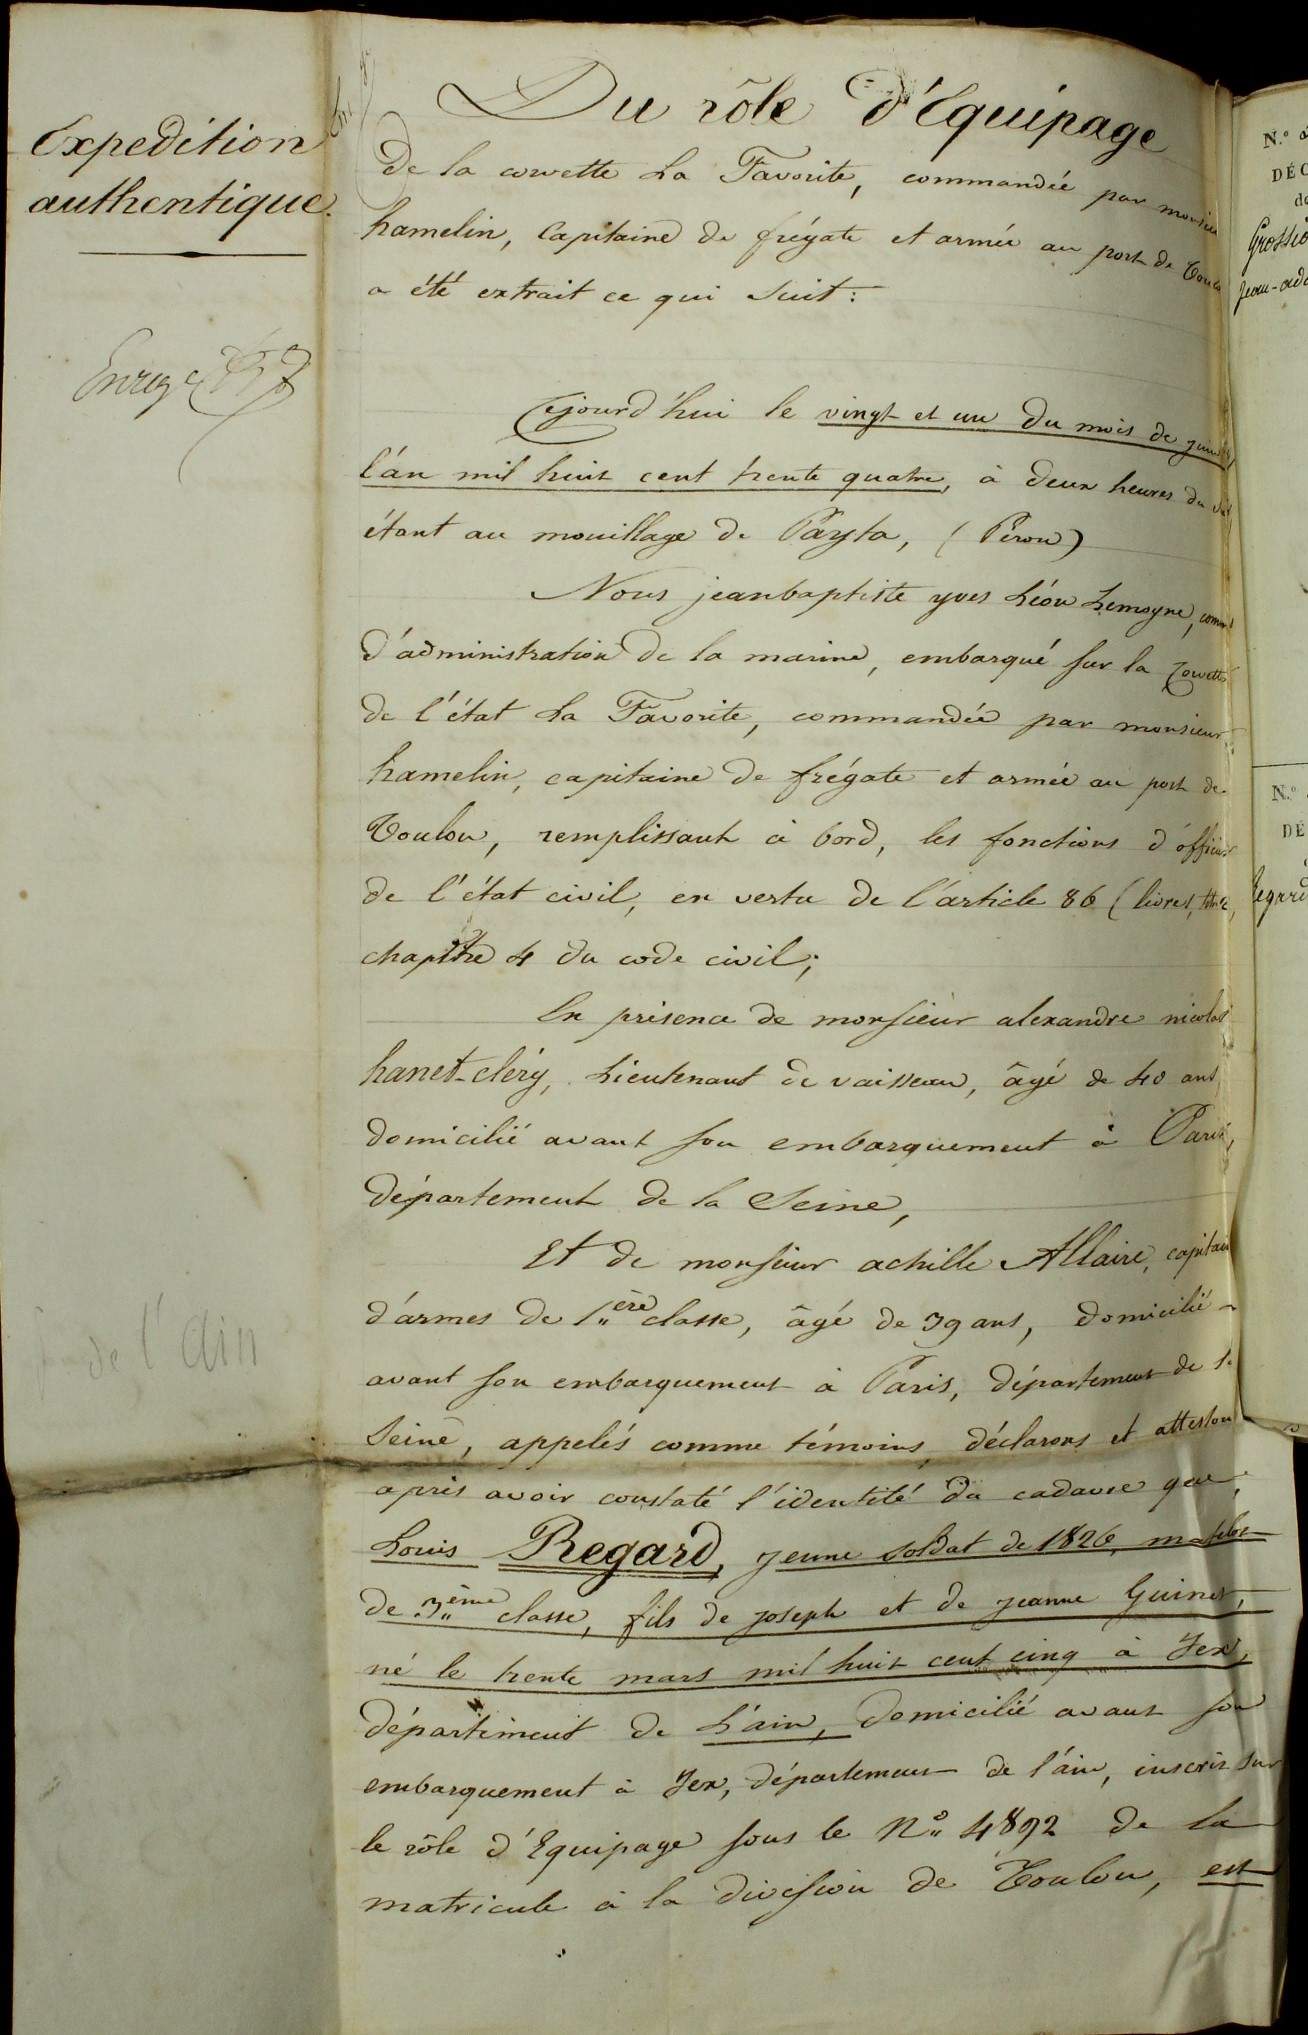 Expedition
authentique.
de l'Ain
Du rôle d'Equipage
De la corvette La Favorite, commandée par monsieu
hamelin, Capitaine de frégate et armée au port de Toulo
a été extrait ce qui suit :
Cejourd'hui le vingt et un du mois de juin
l'an mil huit cent trente quatre, à deux heures du
étant au mouillage de Payta, (Pérou)
Nous jeanbaptiste yves Léon Lemoyne, comm
d'administration de la marine, embarqué sur la Corvette
de l'état La Favorite, commandée par monsieur
hamelin, capitaine de frégate et armée au port de
Toulon, remplissant à bord, les fonctions d'officier
de l'état civil, en vertu de l'article 86 (livre 1, titre 2,
chapitre 4 du code civil;
En présence de monsieur alexandre nicolas
hanet-cléry, Lieutenant de vaisseau, âgé de 40 ans
domicilié avant son embarquement à Paris,
département de la Seine,
Et de monsieur achille Allaire, capitain
d'armes de 1ère classe, âgé de 39 ans, domicilié
avant son embarquement à Paris, département de la
Seine, appelés comme témoins, déclarons et attestons
après avoir constaté l'identité du cadavre que,
Louis Regard, jeune soldat de 1826, matelot
de 3ème classe, fils de joseph et de jeanne Guinet,
né le trente mars mil huit cent cinq à Jex,
département de L'ain, domicilié avant son
embarquement à Jex, département de l'ain, inscrit sur
le rôle d'Equipage sous le N° 4892 de la
matricule à la division de Toulon, est
N.°
DÉC
Grossio
Jean-ado
N.°
DÉ
Regard